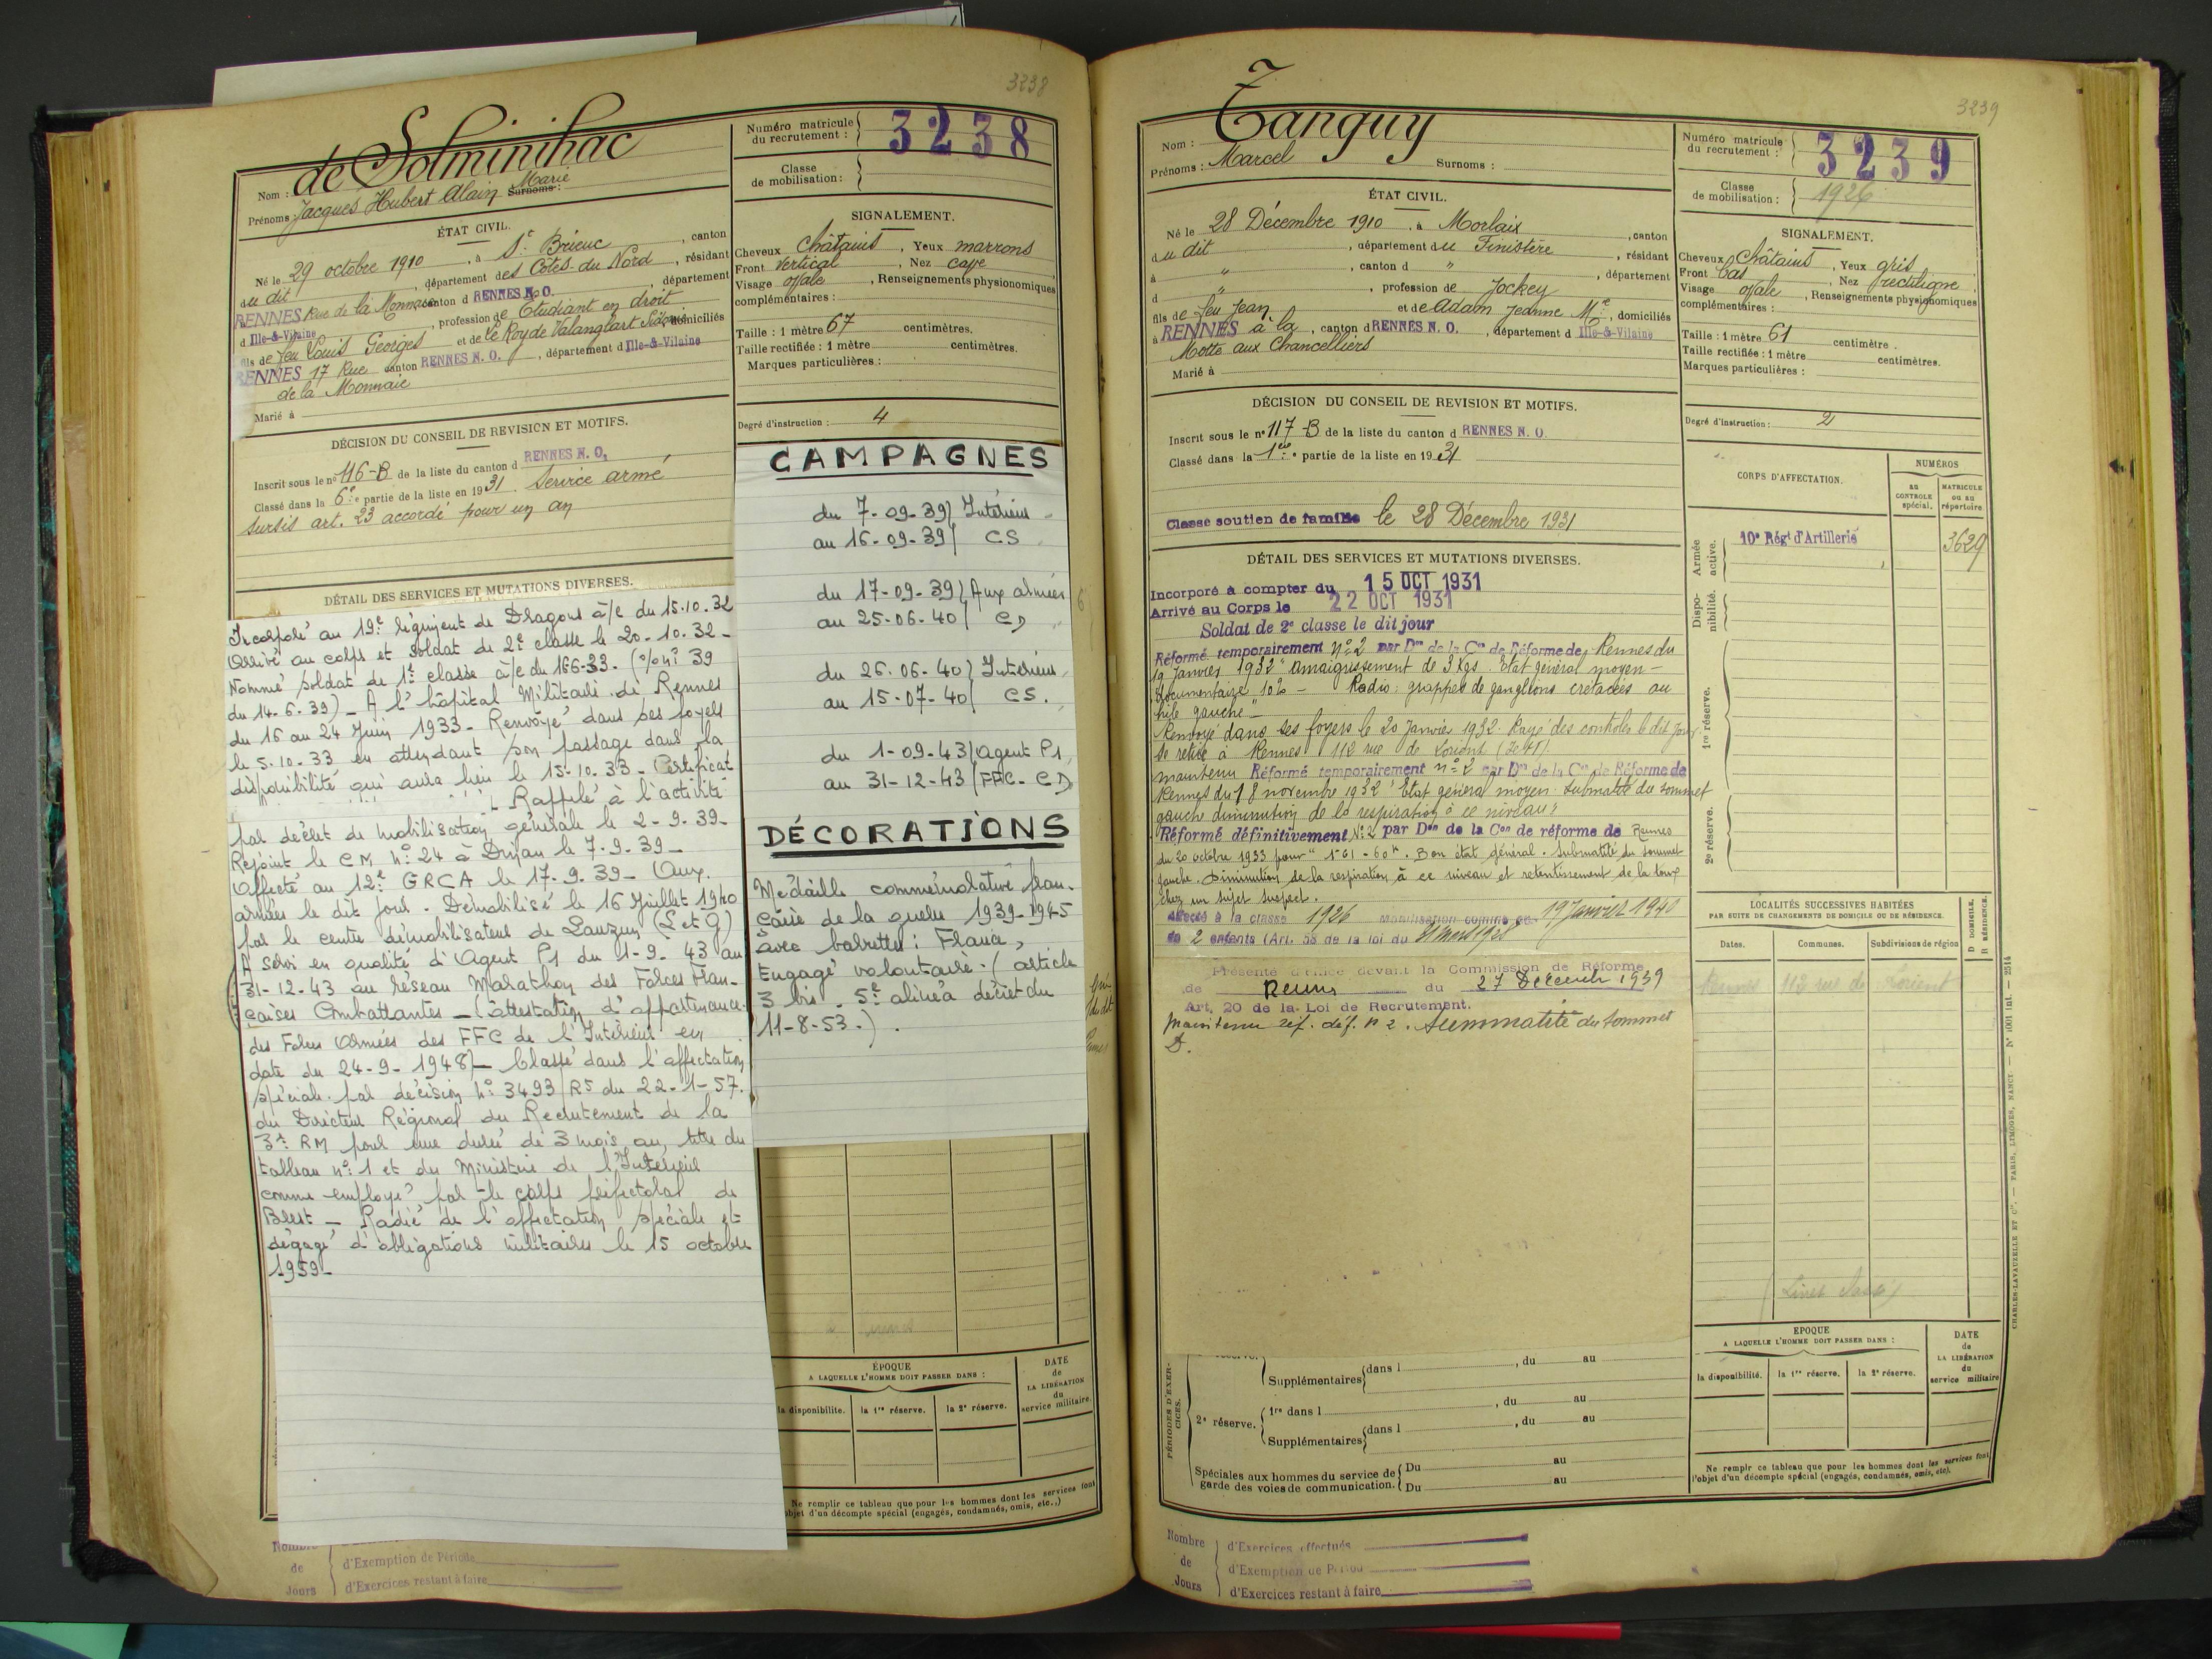 3238
de Solminihac
Nom :
Prénoms : Jacques Hubert Alain Marie Surnoms :
Numéro matricule du recrutement : 3238
Classe de mobilisation :
ÉTAT CIVIL.
Né le 29 octobre 1910, à St Brieuc, canton
du dit, département des Côtes du Nord, résidant
RENNES Rue de la Monnaie canton d RENNES N.O., département
d Ille-&-Vilaine, profession de Etudiant en droit
fils de feu Louis Georges et de Le Roy de Valanglart, domiciliés
RENNES 17 Rue canton RENNES N. O., département d Ille-&-Vilaine
de la Monnaie
Marié à
SIGNALEMENT.
Cheveux Châtains, Yeux marrons
Front Vertical, Nez cave
Visage ovale, Renseignements physionomiques
complémentaires :
Taille : 1 mètre 67 centimètres.
Taille rectifiée : 1 mètre centimètres.
Marques particulières :
Degré d'instruction : 4
DÉCISION DU CONSEIL DE REVISION ET MOTIFS.
Inscrit sous le n° 116-B de la liste du canton d RENNES N. O.
Classé dans la 6e partie de la liste en 1931. Service armé
Sursis art. 23 accordé pour un an
DÉTAIL DES SERVICES ET MUTATIONS DIVERSES.
Incorporé au 19e régiment de Dragons à/c du 15.10.32
Arrivé au corps et soldat de 2e classe le 20-10-32-
Nommé soldat de 1e classe à/c du 16-6-33. (o/o n° 39
du 14.6.39)_ A l'hôpital Militaire de Rennes
du 16 au 24 Juin 1933_ Renvoyé dans ses foyers
le 5.10.33 en attendant son passage dans la
disponibilité qui aura lieu le 15-10.33_ Certificat
Rappelé à l'activité
par décret de mobilisation générale le 2-9-39_
Rejoint le CM n° 24 à Dinan le 7.9.39_
Affecté au 12e GRCA le 17.9.39_ Aux
armées le dit jour. Démobilisé le 16 Juillet 1940
par le centre démobilisateur de Lauzun (L et G)
A servi en qualité d'Agent P1 du 1-9-43 au
31-12-43 au réseau Marathon des Forces Fran-
çaises Combattantes_ (attestation d'appartenance
des Forces Armées des FFC de l'Intérieur en
date du 24-9-1948)_ Classé dans l'affectation
spéciale par décision n° 3493/R5 du 22-1-57.
du Directeur Régional du Recrutement de la
3e RM pour une durée de 3 mois au titre du
tableau n° 1 et du Ministère de l'Intérieur
comme employé par le corps préfectoral de
Brest_ Radié de l'affectation spéciale et
dégagé d'obligations militaires le 15 octobre
1959_
CAMPAGNES
du 7-09-39 Intérieur
au 16-09-39 CS
du 17-09-39 Aux armées
au 25-06-40 CD
du 26.06-40 Intérieur
au 15-07-40 CS.
du 1-09-43 agent P1
au 31-12-43 FFC-CD
DÉCORATIONS
Médaille commémorative fran-
çaise de la guerre 1939-1945
avec barrettes : France,
Engagé volontaire. (article
3 bis. 5e alinéa décret du
11-8-53.).
ÉPOQUE
A LAQUELLE L'HOMME DOIT PASSER DANS :
la disponibilité. la 1re réserve. la 2e réserve.
DATE de LA LIBÉRATION du service militaire.
Ne remplir ce tableau que pour les hommes dont les services font
objet d'un décompte spécial (engagés, condamnés, omis, etc..)
Nombre de Jours
d'Exemption de Période
d'Exercices restant à faire
3239
Nom : Tanguy
Prénoms : Marcel Surnoms :
Numéro matricule du recrutement : 3239
Classe de mobilisation : 1926
ÉTAT CIVIL.
Né le 28 Décembre 1910, à Morlaix, canton
du dit, département du Finistère, résidant
à ", canton d ", département
d ", profession de Jockey
fils de feu Jean et de Adam Jeanne Mie, domiciliés
à RENNES à la, canton d RENNES N. O., département d Ille-&-Vilaine
Motte aux Chancelliers
Marié à
SIGNALEMENT.
Cheveux Châtains, Yeux gris
Front bas, Nez rectiligne
Visage ovale, Renseignements physionomiques
complémentaires :
Taille : 1 mètre 61 centimètre.
Taille rectifiée : 1 mètre centimètres.
Marques particulières :
Degré d'instruction : 2
DÉCISION DU CONSEIL DE REVISION ET MOTIFS.
Inscrit sous le n° 117-B de la liste du canton d RENNES N. O.
Classé dans la 1ère partie de la liste en 1931
Classe soutien de famille le 28 Décembre 1931
DÉTAIL DES SERVICES ET MUTATIONS DIVERSES.
Incorporé à compter du 15 OCT 1931
Arrivé au Corps le 22 OCT 1931
Soldat de 2e classe le dit jour
Réformé temporairement N° 2 par Don de la Con de Réforme de Rennes du
19 Janvier 1932 "Amaigrissement de 3 kgs. Etat général moyen -
documentaire 10% - Radio : grappes de ganglions cretacées au
hile gauche"
Renvoyé dans ses foyers le 20 Janvier 1932. Rayé des contrôles le dit jour
Se retire à Rennes 112 rue de Lorient
maintenu Réformé temporairement n° 2 par Don de la Con de Réforme de
Rennes du 18 novembre 1932 "Etat général moyen. Submatité du sommet
gauche diminution de la respiration à ce niveau"
Réformé définitivement N° 2 par Don de la Con de réforme de Rennes
du 20 octobre 1933 pour "1m61 - 60k. Bon état général. Submatité du sommet
gauche. Diminution de la respiration à ce niveau et retentissement de la toux
chez un sujet suspect.
à la classe 1926 mobilisation comme 19 Janvier 1940
de 2 enfants (Art. 58 de la loi du 31 mars 1928
Présenté d'office devant la Commission de Réforme
de Rennes du 27 Décembre 1939
Art. 20 de la Loi de Recrutement.
Maintenu réf. déf. n° 2. du sommet
D.
CORPS D'AFFECTATION.
NUMÉROS
AU CONTROLE spécial. MATRICULE ou au répertoire.
Armée active. 10e Régt d'Artillerie 3629
Dispo-nibilité.
1re réserve.
2e réserve.
LOCALITÉS SUCCESSIVES HABITÉES
PAR SUITE DE CHANGEMENTS DE DOMICILE OU DE RÉSIDENCE.
D DOMICILE. R RÉSIDENCE.
Dates. Communes. Subdivisions de région
Rennes 112 rue de Lorient
PÉRIODES D'EXERCICES.
Supplémentaires dans l , du au
2e réserve. 1re dans l , du au
Supplémentaires dans l , du au
Spéciales aux hommes du service de garde des voies de communication. Du au
Du au
ÉPOQUE
A LAQUELLE L'HOMME DOIT PASSER DANS :
la disponibilité. la 1re réserve. la 2e réserve.
DATE de LA LIBÉRATION du service militaire
Ne remplir ce tableau que pour les hommes dont les services font
l'objet d'un décompte spécial (engagés, condamnés, omis, etc).
CHARLES-LAVAUZELLE ET Cie. — PARIS, LIMOGES, NANCY. — N° 1001 Int. — 2514
Nombre de Jours
d'Exercices effectués
d'Exemption de Période
d'Exercices restant à faire